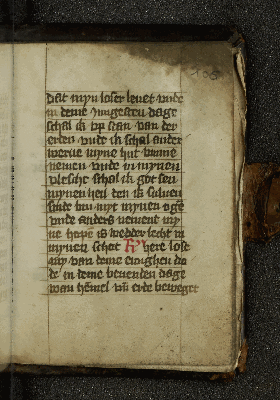 dat myn loser leuet vnde
in deme yungesten dage
schal ik vp stan van der
erden vnde ik schal ander
werue myne hut vmme
nemen vnde in mynen
vlesche schal ik got sen
mynen heil den ik suluen
sende bin myt mynen ogē
vnde anders nement my
ne hape is wedder lecht in
mynen schot Rm here lose
my van deme ewighen do
de in deme beuenden dage
wan hēmel vn̄ erde beweget